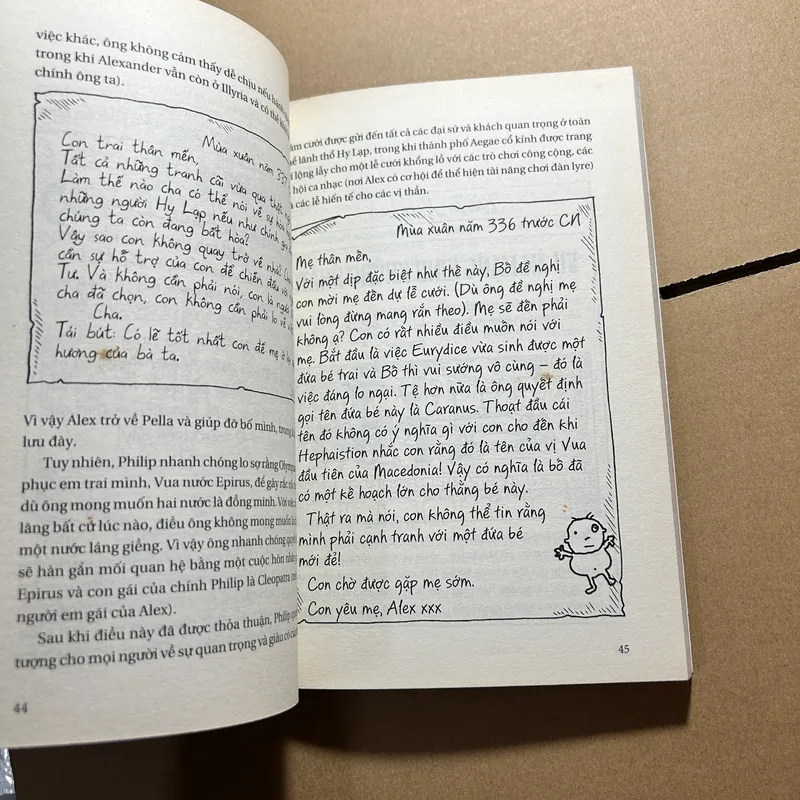 việc khác, ông không cảm thấy dễ chịu nếu
trong khi Alexander vẫn còn ở Illyria và có thể
chính ông ta).
Mùa xuân năm 337
Con trai thân mến,
Tất cả những tranh cãi vừa qua thật
Làm thế nào cha có thể nói về sự hòa
những người Hy Lạp nếu như chính gia
chúng ta còn đang bất hòa?
Vậy sao con không quay trở về nhà?
cần sự hỗ trợ của con để chiến đấu với
Tư. Và không cần phải nói, con là người
cha đã chọn, con không cần phải lo về
Cha.
Tái bút: Có lẽ tốt nhất con để mẹ ở
hương của bà ta.
Vì vậy Alex trở về Pella và giúp đỡ bố mình, trong
lưu đày.
Tuy nhiên, Philip nhanh chóng lo sợ rằng
phục em trai mình, Vua nước Epirus, để gây rắc
dù ông mong muốn hai nước là đồng minh. Với
lăng bất cứ lúc nào, điều ông không mong muốn là
một nước láng giềng. Vì vậy ông nhanh chóng
sẽ hàn gắn mối quan hệ bằng một cuộc hôn nhân
Epirus và con gái của chính Philip là Cleopatra
người em gái của Alex).
Sau khi điều này đã được thỏa thuận, Philip
tượng cho mọi người về sự quan trọng và giàu có của
44
cưới được gửi đến tất cả các đại sứ và khách quan trọng ở toàn
lãnh thổ Hy Lạp, trong khi thành phố Aegae cổ kính được trang
lộng lẫy cho một lễ cưới khổng lồ với các trò chơi công cộng, các
hội ca nhạc (nơi Alex có cơ hội để thể hiện tài năng chơi đàn lyre)
các lễ hiến tế cho các vị thần.
Mùa xuân năm 336 trước CN
Mẹ thân mến,
Với một dịp đặc biệt như thế này, Bố đề nghị
con mời mẹ đến dự lễ cưới. (Dù ông đề nghị mẹ
vui lòng đừng mang rắn theo). Mẹ sẽ đến phải
không ạ? Con có rất nhiều điều muốn nói với
mẹ. Bắt đầu là việc Eurydice vừa sinh được một
đứa bé trai và Bố thì vui sướng vô cùng – đó là
việc đáng lo ngại. Tệ hơn nữa là ông quyết định
gọi tên đứa bé này là Caranus. Thoạt đầu cái
tên đó không có ý nghĩa gì với con cho đến khi
Hephaistion nhắc con rằng đó là tên của vị Vua
đầu tiên của Macedonia! Vậy có nghĩa là bố đã
có một kế hoạch lớn cho thằng bé này.
Thật ra mà nói, con không thể tin rằng
mình phải cạnh tranh với một đứa bé
mới đẻ!
Con chờ được gặp mẹ sớm.
Con yêu mẹ, Alex xxx
45